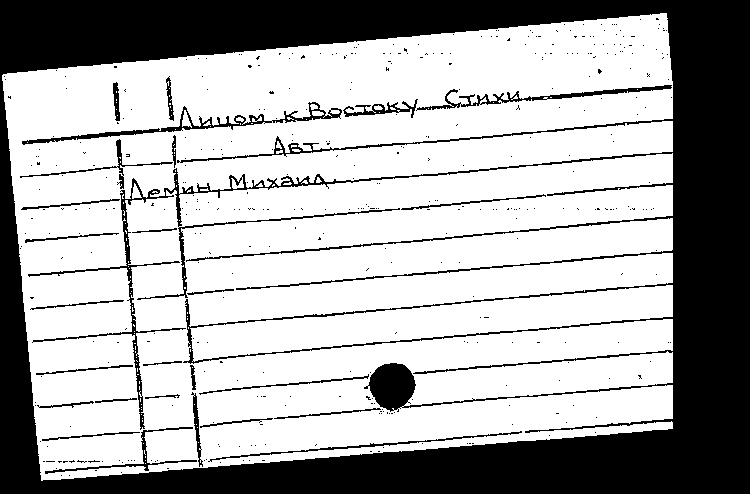 Лицом к Востоку Стихи
Авт.
Демин, Михаил.